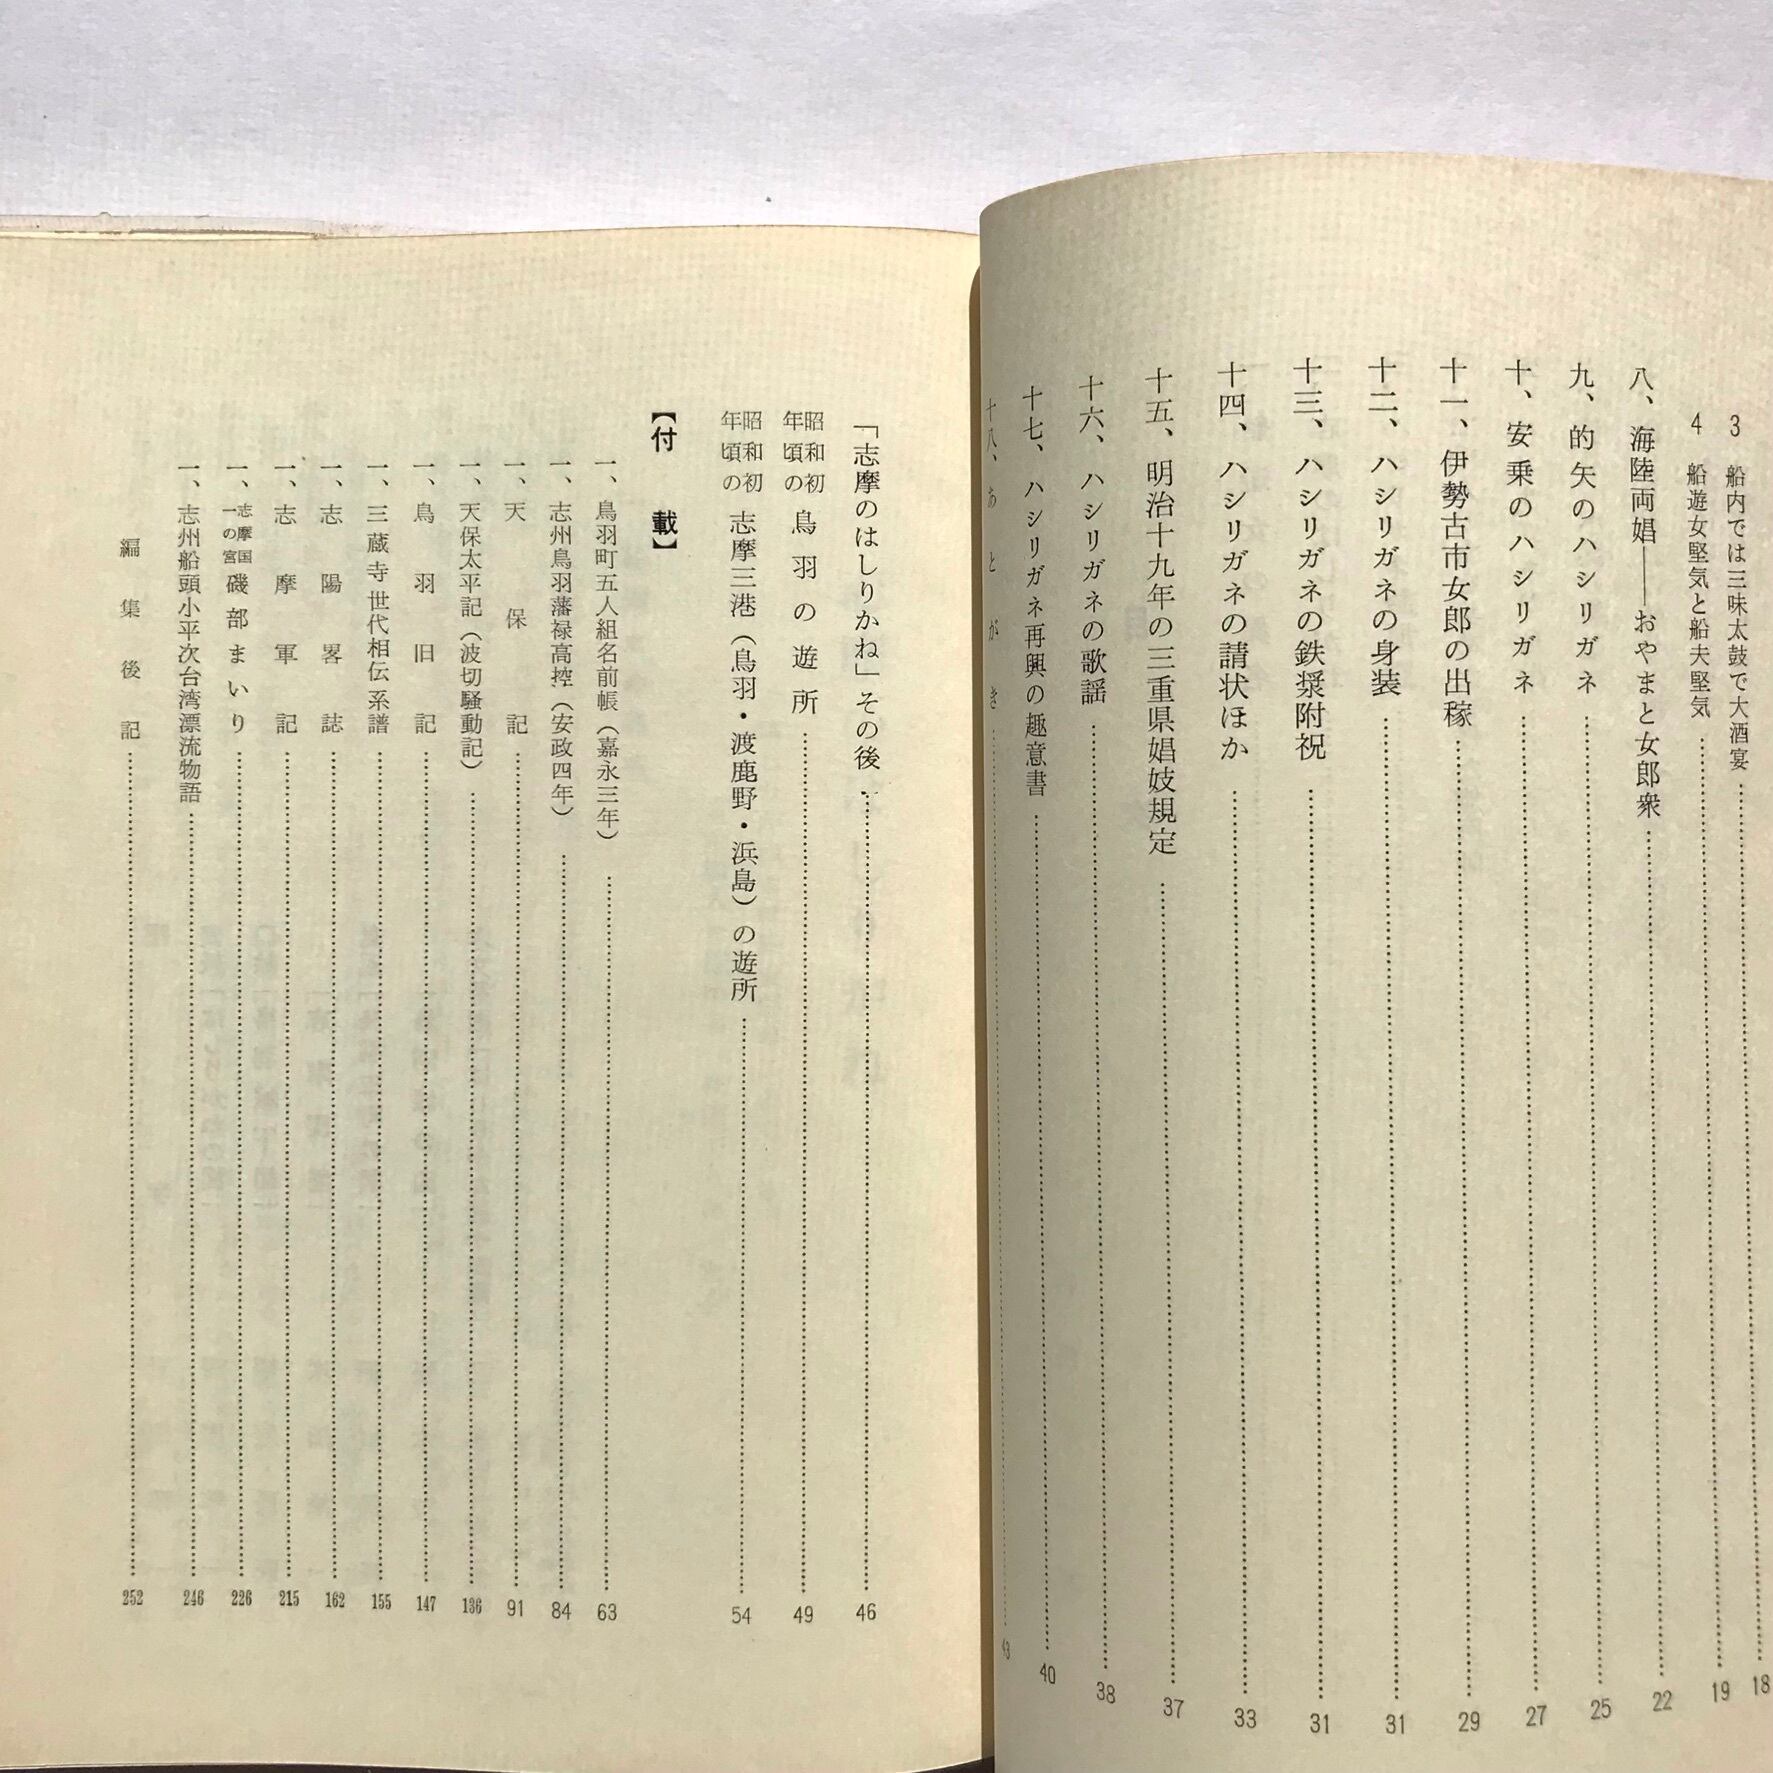 3 船内では三味太鼓で大酒宴……18
4 船遊女堅気と船夫堅気……19
八、海陸両娼――おやまと女郎衆……22
九、的矢のハシリガネ……25
十、安乗のハシリガネ……27
十一、伊勢古市女郎の出稼……29
十二、ハシリガネの身装……31
十三、ハシリガネの鉄漿附祝……31
十四、ハシリガネの請状ほか……33
十五、明治十九年の三重県娼妓規定……37
十六、ハシリガネの歌謡……38
十七、ハシリガネ再興の趣意書……40
十八、あとがき……43
「志摩のはしりかね」その後……46
昭和初年頃の 鳥羽の遊所……49
昭和初年頃の 志摩三港（鳥羽・渡鹿野・浜島）の遊所……54
【付 載】
一、鳥羽町五人組名前帳（嘉永三年）……63
一、志州鳥羽藩禄高控（安政四年）……84
一、天保記……91
一、天保太平記（波切騒動記）……136
一、鳥羽旧記……147
一、三蔵寺世代相伝系譜……155
一、志陽畧誌……162
一、志摩軍記……215
一、志摩国一の宮 磯部まいり……226
一、志州船頭小平次台湾漂流物語……246
編集後記……252